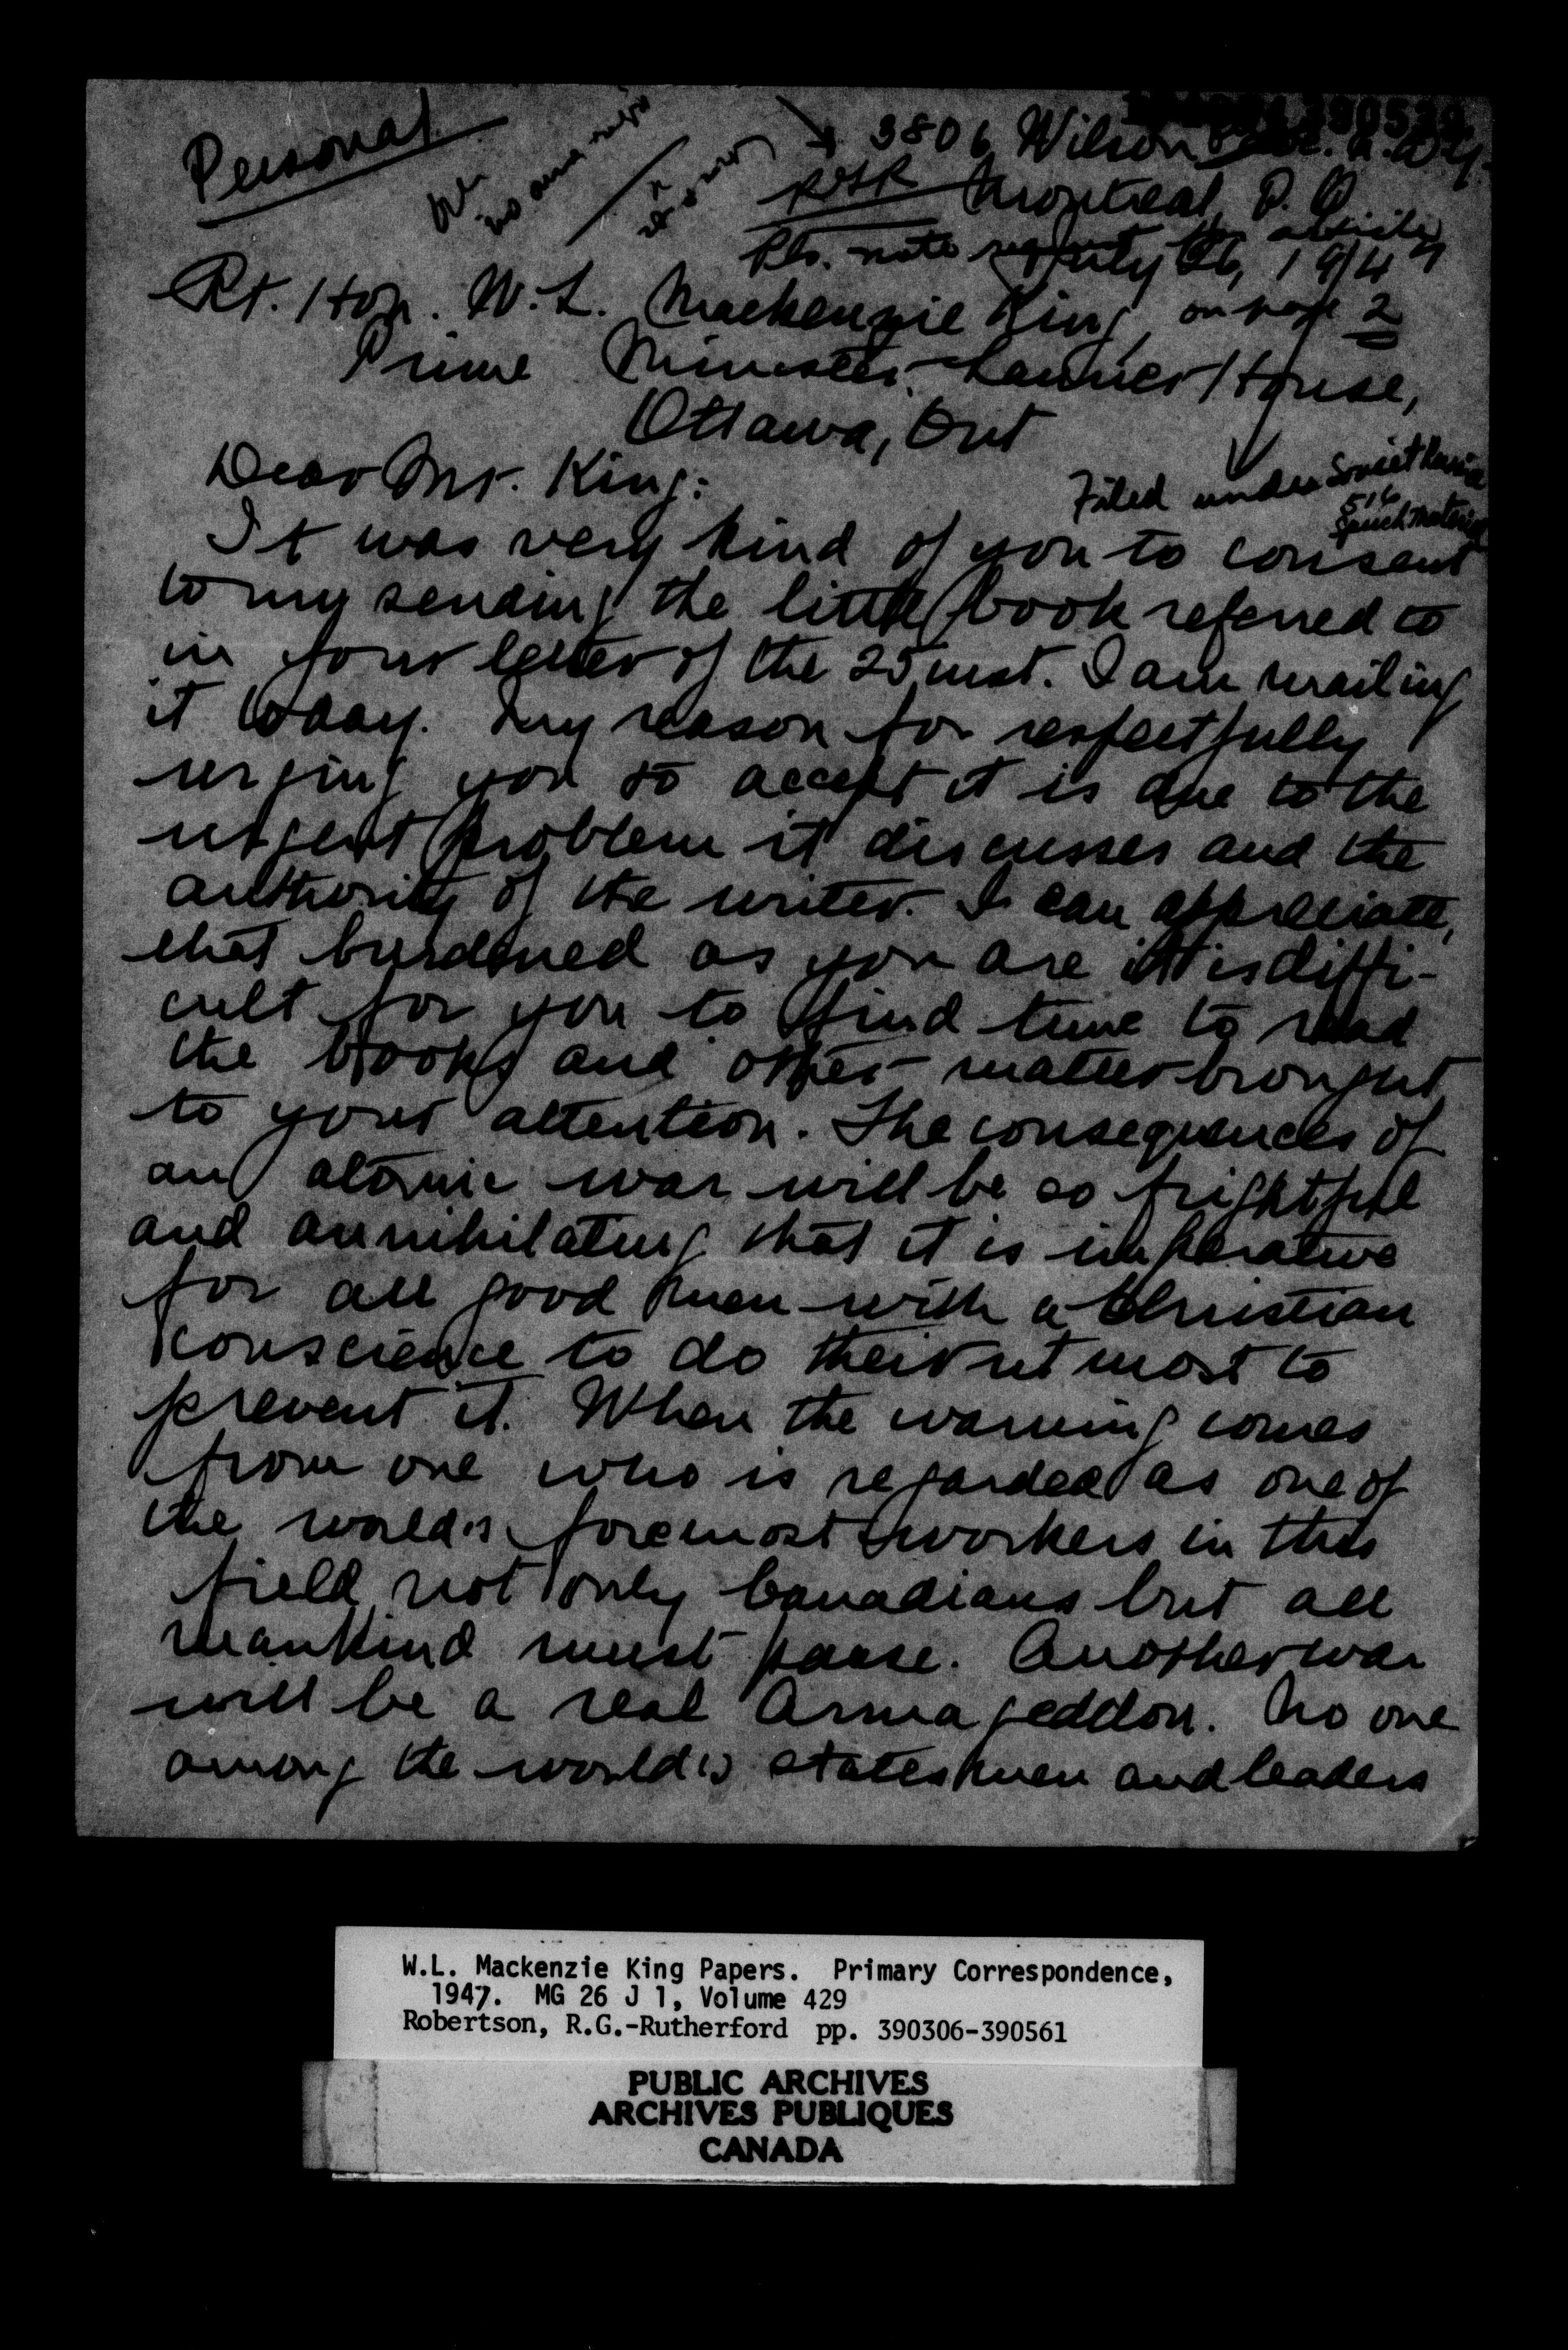 Personal
3806 Wilson Ave. N.D.G.
Montreal, P.Q.
Pls. note re article
July 26, 1947
on page 2
Rt. Hon. W.L. Mackenzie King,
Prime Minister, Laurier House,
Ottawa, Ont
Filed under Soviet Russia
516
Speech Material
Dear Mr. King:
It was very kind of you to consent
to my sending the little book referred to
in your letter of the 25 inst. I am mailing
it today. My reason for respectfully
urging you to accept it is due to the
urgent problem it discusses and the
authority of the writer. I can appreciate,
that burdened as you are it is diffi-
cult for you to find time to read
the books and other matter brought
to your attention. The consequences of
an atomic war will be so frightful
and annihilating that it is imperative
for all good men with a Christian
conscience to do their utmost to
prevent it. When the warning comes
from one who is regarded as one of
the world's foremost workers in this
field, not only Canadians but all
mankind must pause. Another war
will be a real Armageddon. No one
among the world's statesmen and leaders
W.L. Mackenzie King Papers. Primary Correspondence,
1947. MG 26 J 1, Volume 429
Robertson, R.G.-Rutherford pp. 390306-390561
PUBLIC ARCHIVES
ARCHIVES PUBLIQUES
CANADA